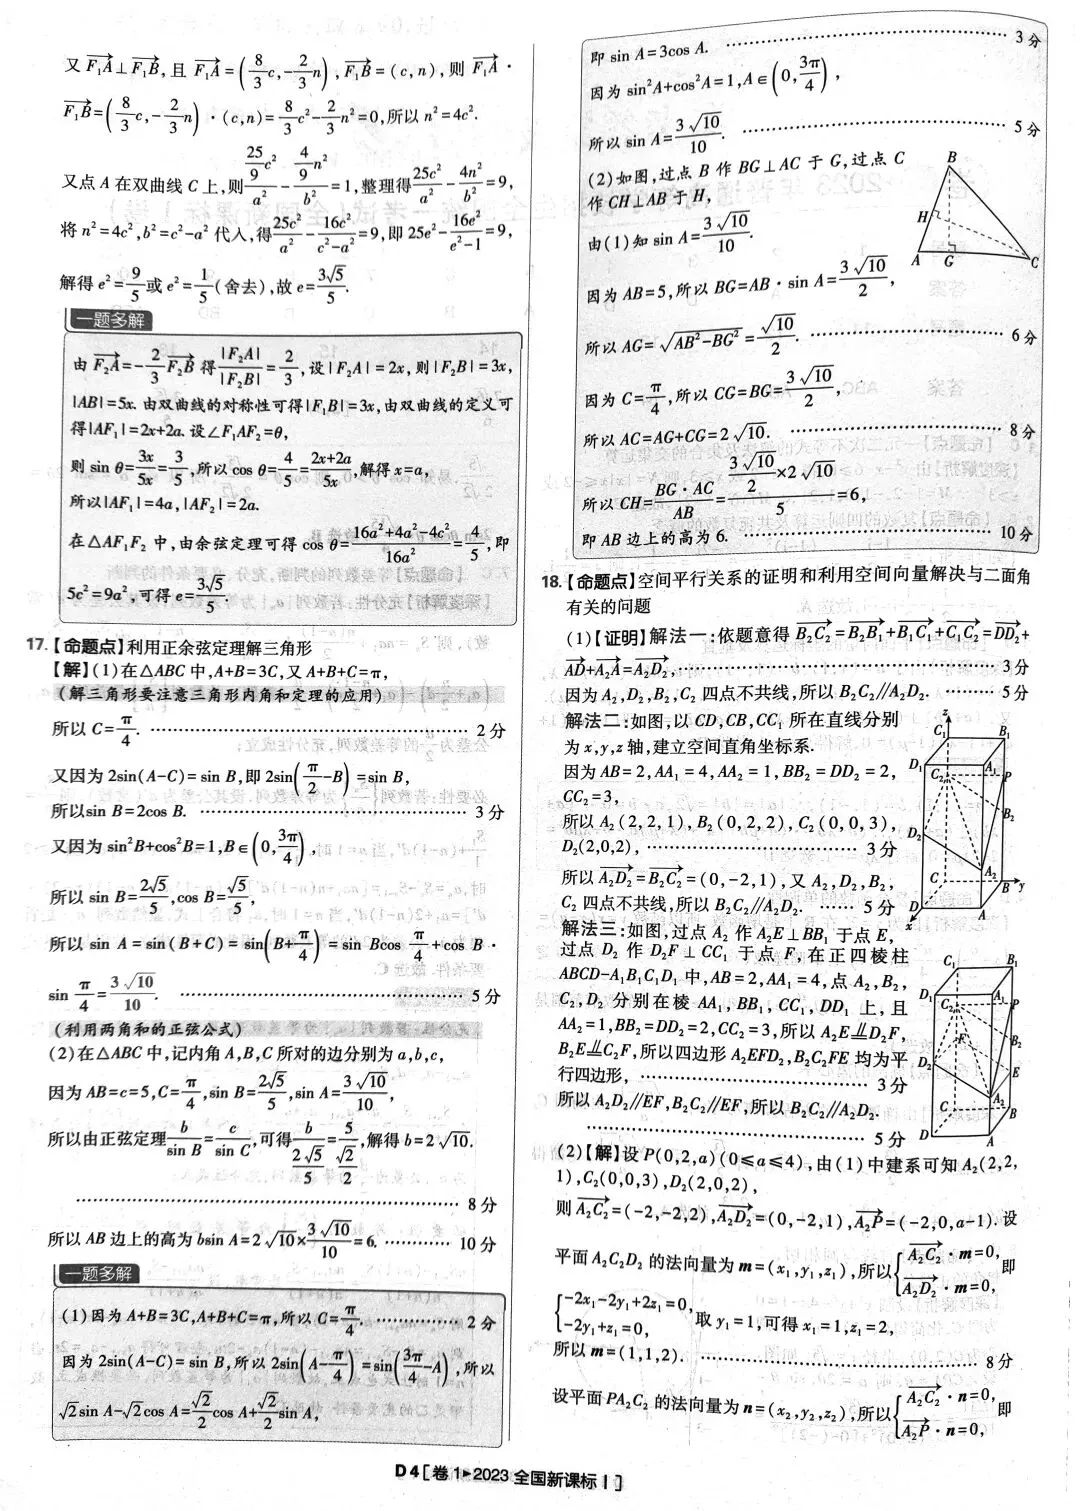 又 F₁A⊥F₁B,且 F₁A=(8/3c,-2/3n),F₁B=(c,n),则 F₁A·
F₁B=(8/3c,-2/3n)·(c,n)=8/3c²-2/3n²=0,所以 n²=4c².
又点 A 在双曲线 C 上,则(25/9c²)/a²-(4/9n²)/b²=1,整理得25c²/a²-4n²/b²=9,
将 n²=4c²,b²=c²-a² 代入,得25c²/a²-16c²/(c²-a²)=9,即 25e²-16e²/(e²-1)=9,
解得 e²=9/5或 e²=1/5(舍去),故 e=3√5/5.
一题多解
由 F₂A=-2/3F₂B 得|F₂A|/|F₂B|=2/3,设|F₂A|=2x,则|F₂B|=3x,
|AB|=5x.由双曲线的对称性可得|F₁B|=3x,由双曲线的定义可
得|AF₁|=2x+2a.设∠F₁AF₂=θ,
则 sin θ=3x/5x=3/5,所以 cos θ=4/5=(2x+2a)/5x,解得 x=a,
所以|AF₁|=4a,|AF₂|=2a.
在△AF₁F₂ 中,由余弦定理可得 cos θ=(16a²+4a²-4c²)/16a²=4/5,即
5c²=9a²,可得 e=3√5/5.
17.【命题点】利用正余弦定理解三角形
【解】(1)在△ABC 中,A+B=3C,又 A+B+C=π,
(解三角形要注意三角形内角和定理的应用)
所以 C=π/4. …… 2分
又因为 2sin(A-C)=sin B,即 2sin(π/2-B)=sin B,
所以sin B=2cos B. …… 3分
又因为 sin²B+cos²B=1,B∈(0,3π/4),
所以 sin B=2√5/5,cos B=√5/5,
所以 sin A=sin(B+C)=sin(B+π/4)=sin Bcos π/4+cos B·
sin π/4=3√10/10. …… 5分
(利用两角和的正弦公式)
(2)在△ABC 中,记内角 A,B,C 所对的边分别为 a,b,c,
因为 AB=c=5,C=π/4,sin B=2√5/5,sin A=3√10/10,
所以由正弦定理b/sin B=c/sin C,可得b/(2√5/5)=5/(√2/2),解得 b=2√10.
…… 8分
所以 AB 边上的高为 bsin A=2√10×3√10/10=6. …… 10分
一题多解
(1)因为 A+B=3C,A+B+C=π,所以 C=π/4. …… 2分
因为 2sin(A-C)=sin B,所以 2sin(A-π/4)=sin(3π/4-A),所以
√2sin A-√2cos A=√2/2cos A+√2/2sin A,
即 sin A=3cos A. …… 3分
因为 sin²A+cos²A=1,A∈(0,3π/4),
所以 sin A=3√10/10. …… 5分
(2)如图,过点 B 作 BG⊥AC 于 G,过点 C
作 CH⊥AB 于 H,
由(1)知 sin A=3√10/10.
因为 AB=5,所以 BG=AB·sin A=3√10/2,
B
H
A G C
所以 AG=√(AB²-BG²)=√10/2. …… 6分
因为 C=π/4,所以 CG=BG=3√10/2,
所以 AC=AG+CG=2√10. …… 8分
所以 CH=BG·AC/AB=(3√10/2×2√10)/5=6,
即 AB 边上的高为 6. …… 10分
18.【命题点】空间平行关系的证明和利用空间向量解决与二面角
有关的问题
(1)【证明】解法一:依题意得 B₂C₂=B₂B₁+B₁C₁+C₁C₂=DD₂+
AD+A₂A=A₂D₂, …… 3分
因为 A₂,D₂,B₂,C₂ 四点不共线,所以 B₂C₂//A₂D₂. …… 5分
解法二:如图,以 CD,CB,CC₁ 所在直线分别
为 x,y,z 轴,建立空间直角坐标系.
因为 AB=2,AA₁=4,AA₂=1,BB₂=DD₂=2,
CC₂=3,
所以 A₂(2,2,1),B₂(0,2,2),C₂(0,0,3),
D₂(2,0,2), …… 3分
所以 A₂D₂=B₂C₂=(0,-2,1),又 A₂,D₂,B₂,
C₂ 四点不共线,所以 B₂C₂//A₂D₂. …… 5分
z
C₁ B₁
D₁ A₁
C₂ P
B₂
D₂
C A₂
B y
D A
x
解法三:如图,过点 A₂ 作 A₂E⊥BB₁ 于点 E,
过点 D₂ 作 D₂F⊥CC₁ 于点 F,在正四棱柱
ABCD-A₁B₁C₁D₁ 中,AB=2,AA₁=4,点 A₂,B₂,
C₂,D₂ 分别在棱 AA₁,BB₁,CC₁,DD₁ 上,且
AA₂=1,BB₂=DD₂=2,CC₂=3,所以 A₂E⫫D₂F,
B₂E⫫C₂F,所以四边形 A₂EFD₂,B₂C₂FE 均为平
行四边形, …… 3分
所以 A₂D₂//EF,B₂C₂//EF,所以 B₂C₂//A₂D₂.
…… 5分
C₁ B₁
D₁ A₁
C₂ P
F B₂
D₂ E
C A₂
B
D A
(2)【解】设 P(0,2,a)(0≤a≤4),由(1)中建系可知 A₂(2,2,
1),C₂(0,0,3),D₂(2,0,2),
则 A₂C₂=(-2,-2,2),A₂D₂=(0,-2,1),A₂P=(-2,0,a-1).设
平面 A₂C₂D₂ 的法向量为 m=(x₁,y₁,z₁),所以{A₂C₂·m=0, A₂D₂·m=0,即
{-2x₁-2y₁+2z₁=0, -2y₁+z₁=0,取 y₁=1,可得 x₁=1,z₁=2,
所以 m=(1,1,2). …… 8分
设平面 PA₂C₂ 的法向量为 n=(x₂,y₂,z₂),所以{A₂C₂·n=0, A₂P·n=0,即
D4[卷1▸2023 全国新课标Ⅰ]